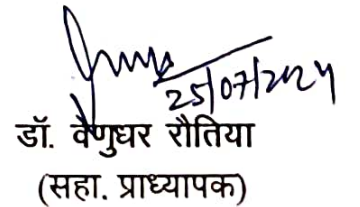 25/07/2024
डॉ. वेणुधर रौतिया
(सहा. प्राध्यापक)